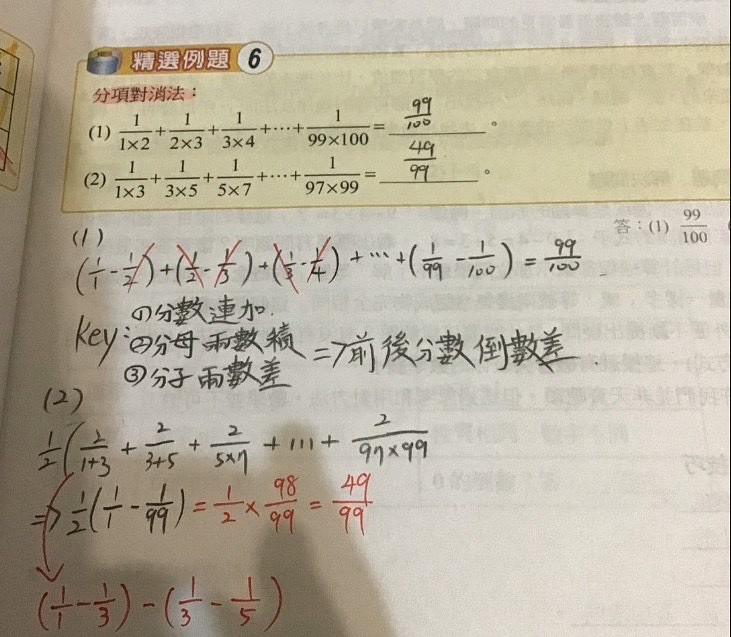 精選例題 6
分項對消法：
(1) 1/1×2 + 1/2×3 + 1/3×4 + ⋯ + 1/99×100 = 99/100 。
(2) 1/1×3 + 1/3×5 + 1/5×7 + ⋯ + 1/97×99 = 49/99 。
答：(1) 99/100
(1)
(1/1 - 1/2) + (1/2 - 1/3) + (1/3 - 1/4) + ⋯ + (1/99 - 1/100) = 99/100
key: ①分數連加.
②分母兩數積 => 前後分數倒數差.
③分子兩數差
(2)
1/2 (2/1+3 + 2/3+5 + 2/5×7 + ⋯ + 2/97×99
=> 1/2 (1/1 - 1/99) = 1/2 × 98/99 = 49/99
(1/1 - 1/3) - (1/3 - 1/5)